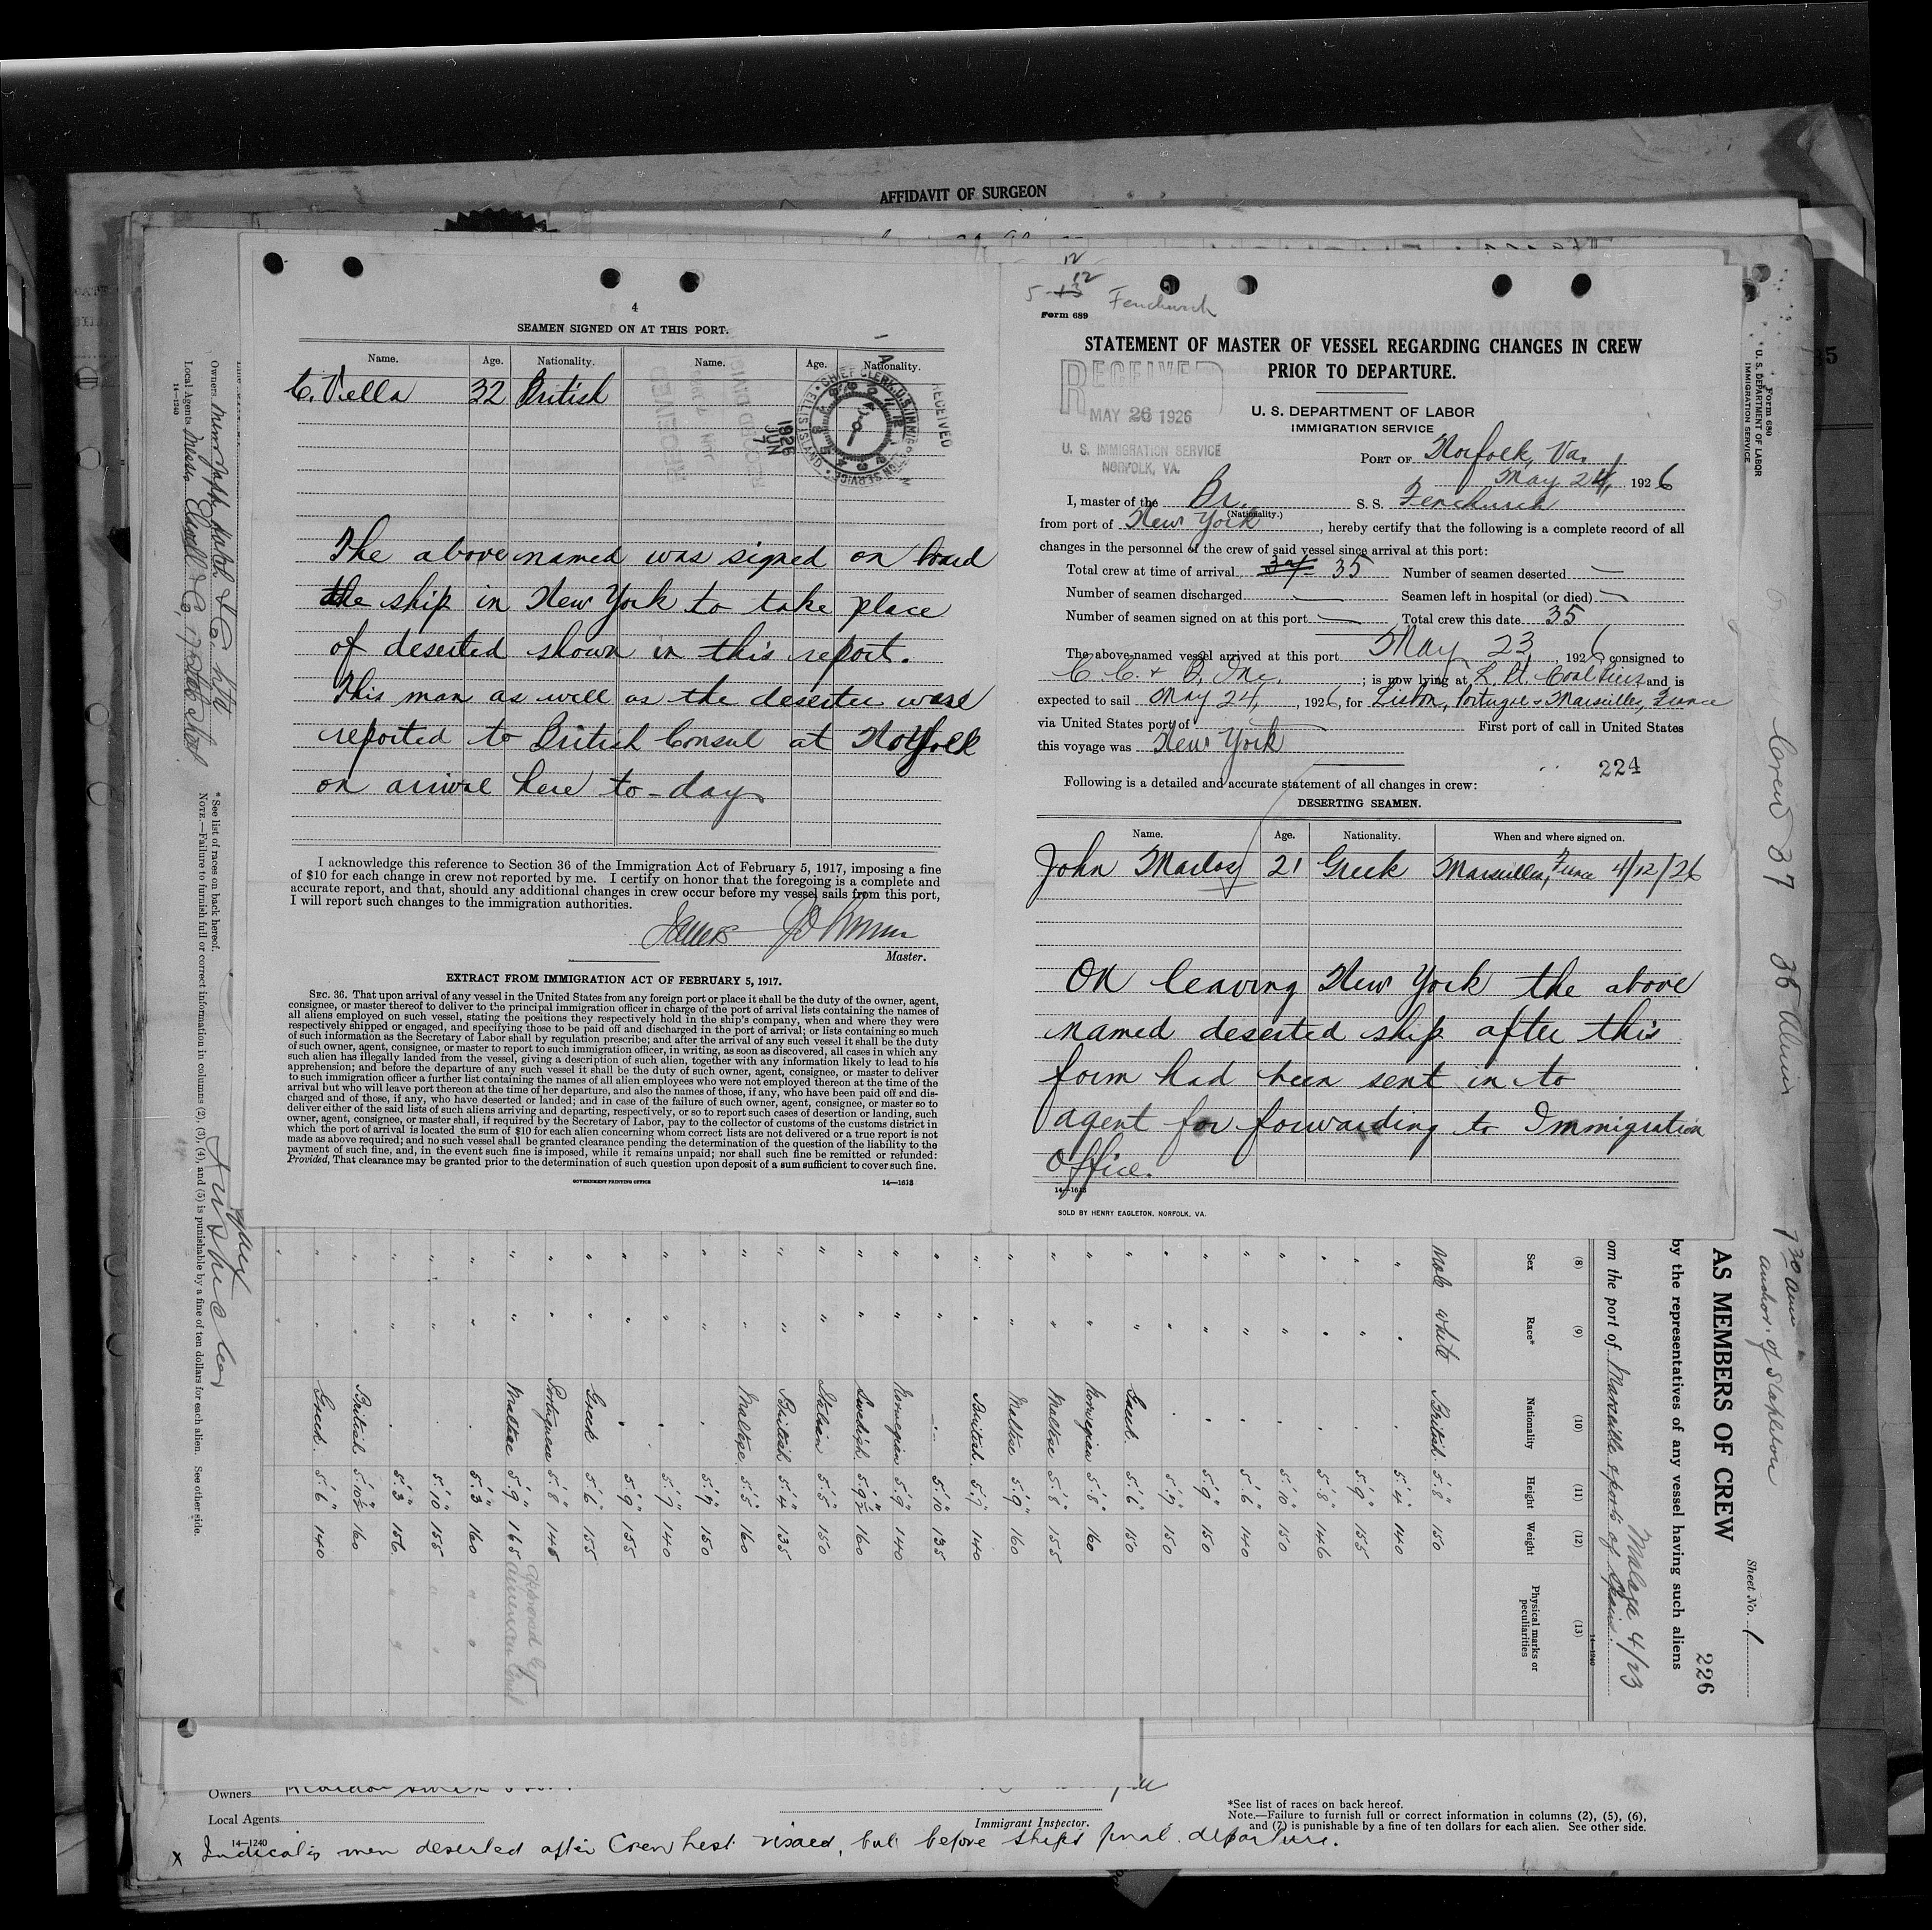 AFFIDAVIT OF SURGEON
4
SEAMEN SIGNED ON AT THIS PORT.
Name. Age. Nationality. Name. Age. Nationality.
C. Viella 32 British
CHIEF CLERK, U.S. IMMIGRATION SERVICE ELLIS ISLAND
1926 JUN 7
RECEIVED
The above named was signed on board
the ship in New York to take place
of deserted shown in this report.
This man as well as the deserter were
reported to British Consul at Norfolk
on arrival here to-day
I acknowledge this reference to Section 36 of the Immigration Act of February 5, 1917, imposing a fine
of $10 for each change in crew not reported by me. I certify on honor that the foregoing is a complete and
accurate report, and that, should any additional changes in crew occur before my vessel sails from this port,
I will report such changes to the immigration authorities.
James Johnson
Master.
EXTRACT FROM IMMIGRATION ACT OF FEBRUARY 5, 1917.
SEC. 36. That upon arrival of any vessel in the United States from any foreign port or place it shall be the duty of the owner, agent,
consignee, or master thereof to deliver to the principal immigration officer in charge of the port of arrival lists containing the names of
all aliens employed on such vessel, stating the positions they respectively hold in the ship's company, when and where they were
respectively shipped or engaged, and specifying those to be paid off and discharged in the port of arrival; or lists containing so much
of such information as the Secretary of Labor shall by regulation prescribe; and after the arrival of any such vessel it shall be the duty
of such owner, agent, consignee, or master to report to such immigration officer, in writing, as soon as discovered, all cases in which any
such alien has illegally landed from the vessel, giving a description of such alien, together with any information likely to lead to his
apprehension; and before the departure of any such vessel it shall be the duty of such owner, agent, consignee, or master to deliver
to such immigration officer a further list containing the names of all alien employees who were not employed thereon at the time of the
arrival but who will leave port thereon at the time of her departure, and also the names of those, if any, who have been paid off and dis-
charged and of those, if any, who have deserted or landed; and in case of the failure of such owner, agent, consignee, or master so to
deliver either of the said lists of such aliens arriving and departing, respectively, or so to report such cases of desertion or landing, such
owner, agent, consignee, or master, shall, if required by the Secretary of Labor, pay to the collector of customs of the customs district in
which the port of arrival is located the sum of $10 for each alien concerning whom correct lists are not delivered or a true report is not
made as above required; and no such vessel shall be granted clearance pending the determination of the question of the liability to the
payment of such fine, and, in the event such fine is imposed, while it remains unpaid; nor shall such fine be remitted or refunded:
Provided, That clearance may be granted prior to the determination of such question upon deposit of a sum sufficient to cover such fine.
GOVERNMENT PRINTING OFFICE 14—1613
12
5-13 12 Fenchurch
Form 689
STATEMENT OF MASTER OF VESSEL REGARDING CHANGES IN CREW
PRIOR TO DEPARTURE.
RECEIVED
MAY 26 1926
U. S. IMMIGRATION SERVICE
NORFOLK, VA.
U. S. DEPARTMENT OF LABOR
IMMIGRATION SERVICE
PORT OF Norfolk, Va.
May 24, 1926
I, master of the Br. (Nationality.) S. S. Fenchurch
from port of New York, hereby certify that the following is a complete record of all
changes in the personnel of the crew of said vessel since arrival at this port:
Total crew at time of arrival 35 Number of seamen deserted —
Number of seamen discharged — Seamen left in hospital (or died) —
Number of seamen signed on at this port — Total crew this date 35
The above-named vessel arrived at this port May 23, 1926 consigned to
C. C. & B. Inc. ; is now lying at L. Pt. Coal Piers and is
expected to sail May 24, 1926, for Lisbon, Portugee & Marseilles, France
via United States port of — First port of call in United States
this voyage was New York
224
Following is a detailed and accurate statement of all changes in crew:
DESERTING SEAMEN.
Name. Age. Nationality. When and where signed on.
John Marlos 21 Greek Marseilles, France 4/12/26
On leaving New York the above
named deserted ship after this
form had been sent in to
agent for forwarding to Immigration
Office.
14—1613
SOLD BY HENRY EAGLETON, NORFOLK, VA.
Form 680
U. S. DEPARTMENT OF LABOR
IMMIGRATION SERVICE
Crew 37 36 alien
7 30 am
anchor. of Stapleton
Sheet No. 1
226
AS MEMBERS OF CREW
by the representatives of any vessel having such aliens
om the port of Marseille & ports of Spain
Malaga 4/23
14—1240
(8) (9) (10) (11) (12) (13)
Sex Race* Nationality Height Weight Physical marks or peculiarities
Male white British 5'.8" 150
" " . 5'.4" 140
" " . 5'.9" 155
" " . 5'.8" 146
" " . 5'.10" 150
" " . 5'.6" 140
" " . 5'.9" 150
" " . 5'.9" 150
" " Greek. 5'.6" 150
" " Norwegian 5'.8" 160
" " Maltese 5'.8" 155
" " Maltese 5'.9" 160
" " British. 5'.7" 140
" " . 5'.10" 135
" " Norwegian 5'.9" 140
" " Swedish 5'.9½" 160
" " Italian 5'.5" 150
" " British 5'.4" 135
" " Maltese 5'.5" 160
" " . 5'.9" 150
" " . 5'.9" 140
" " . 5'.9" 155
" " Greek 5'.6" 155
" " Portuguese 5'.8" 145
" " Maltese 5'.9" 165 approved by American Consul
" " . 5'.3" 160 " "
" " . 5'.10" 155 " "
" " . 5'.3" 156 " "
" " British 5'.10½" 160
" " Greek 5'.6" 140
Local Agents Messrs Elwell & Co,
14—1240
*See list of races on back hereof.
NOTE.—Failure to furnish full or correct information in columns (2), (3), (4), and (5) is punishable by a fine of ten dollars for each alien. See other side.
Owners
Local Agents
Immigrant Inspector.
*See list of races on back hereof.
Note.—Failure to furnish full or correct information in columns (2), (5), (6),
and (7) is punishable by a fine of ten dollars for each alien. See other side.
14—1240
x Indicates men deserted after Crew hest visaed, but before ships final departure.